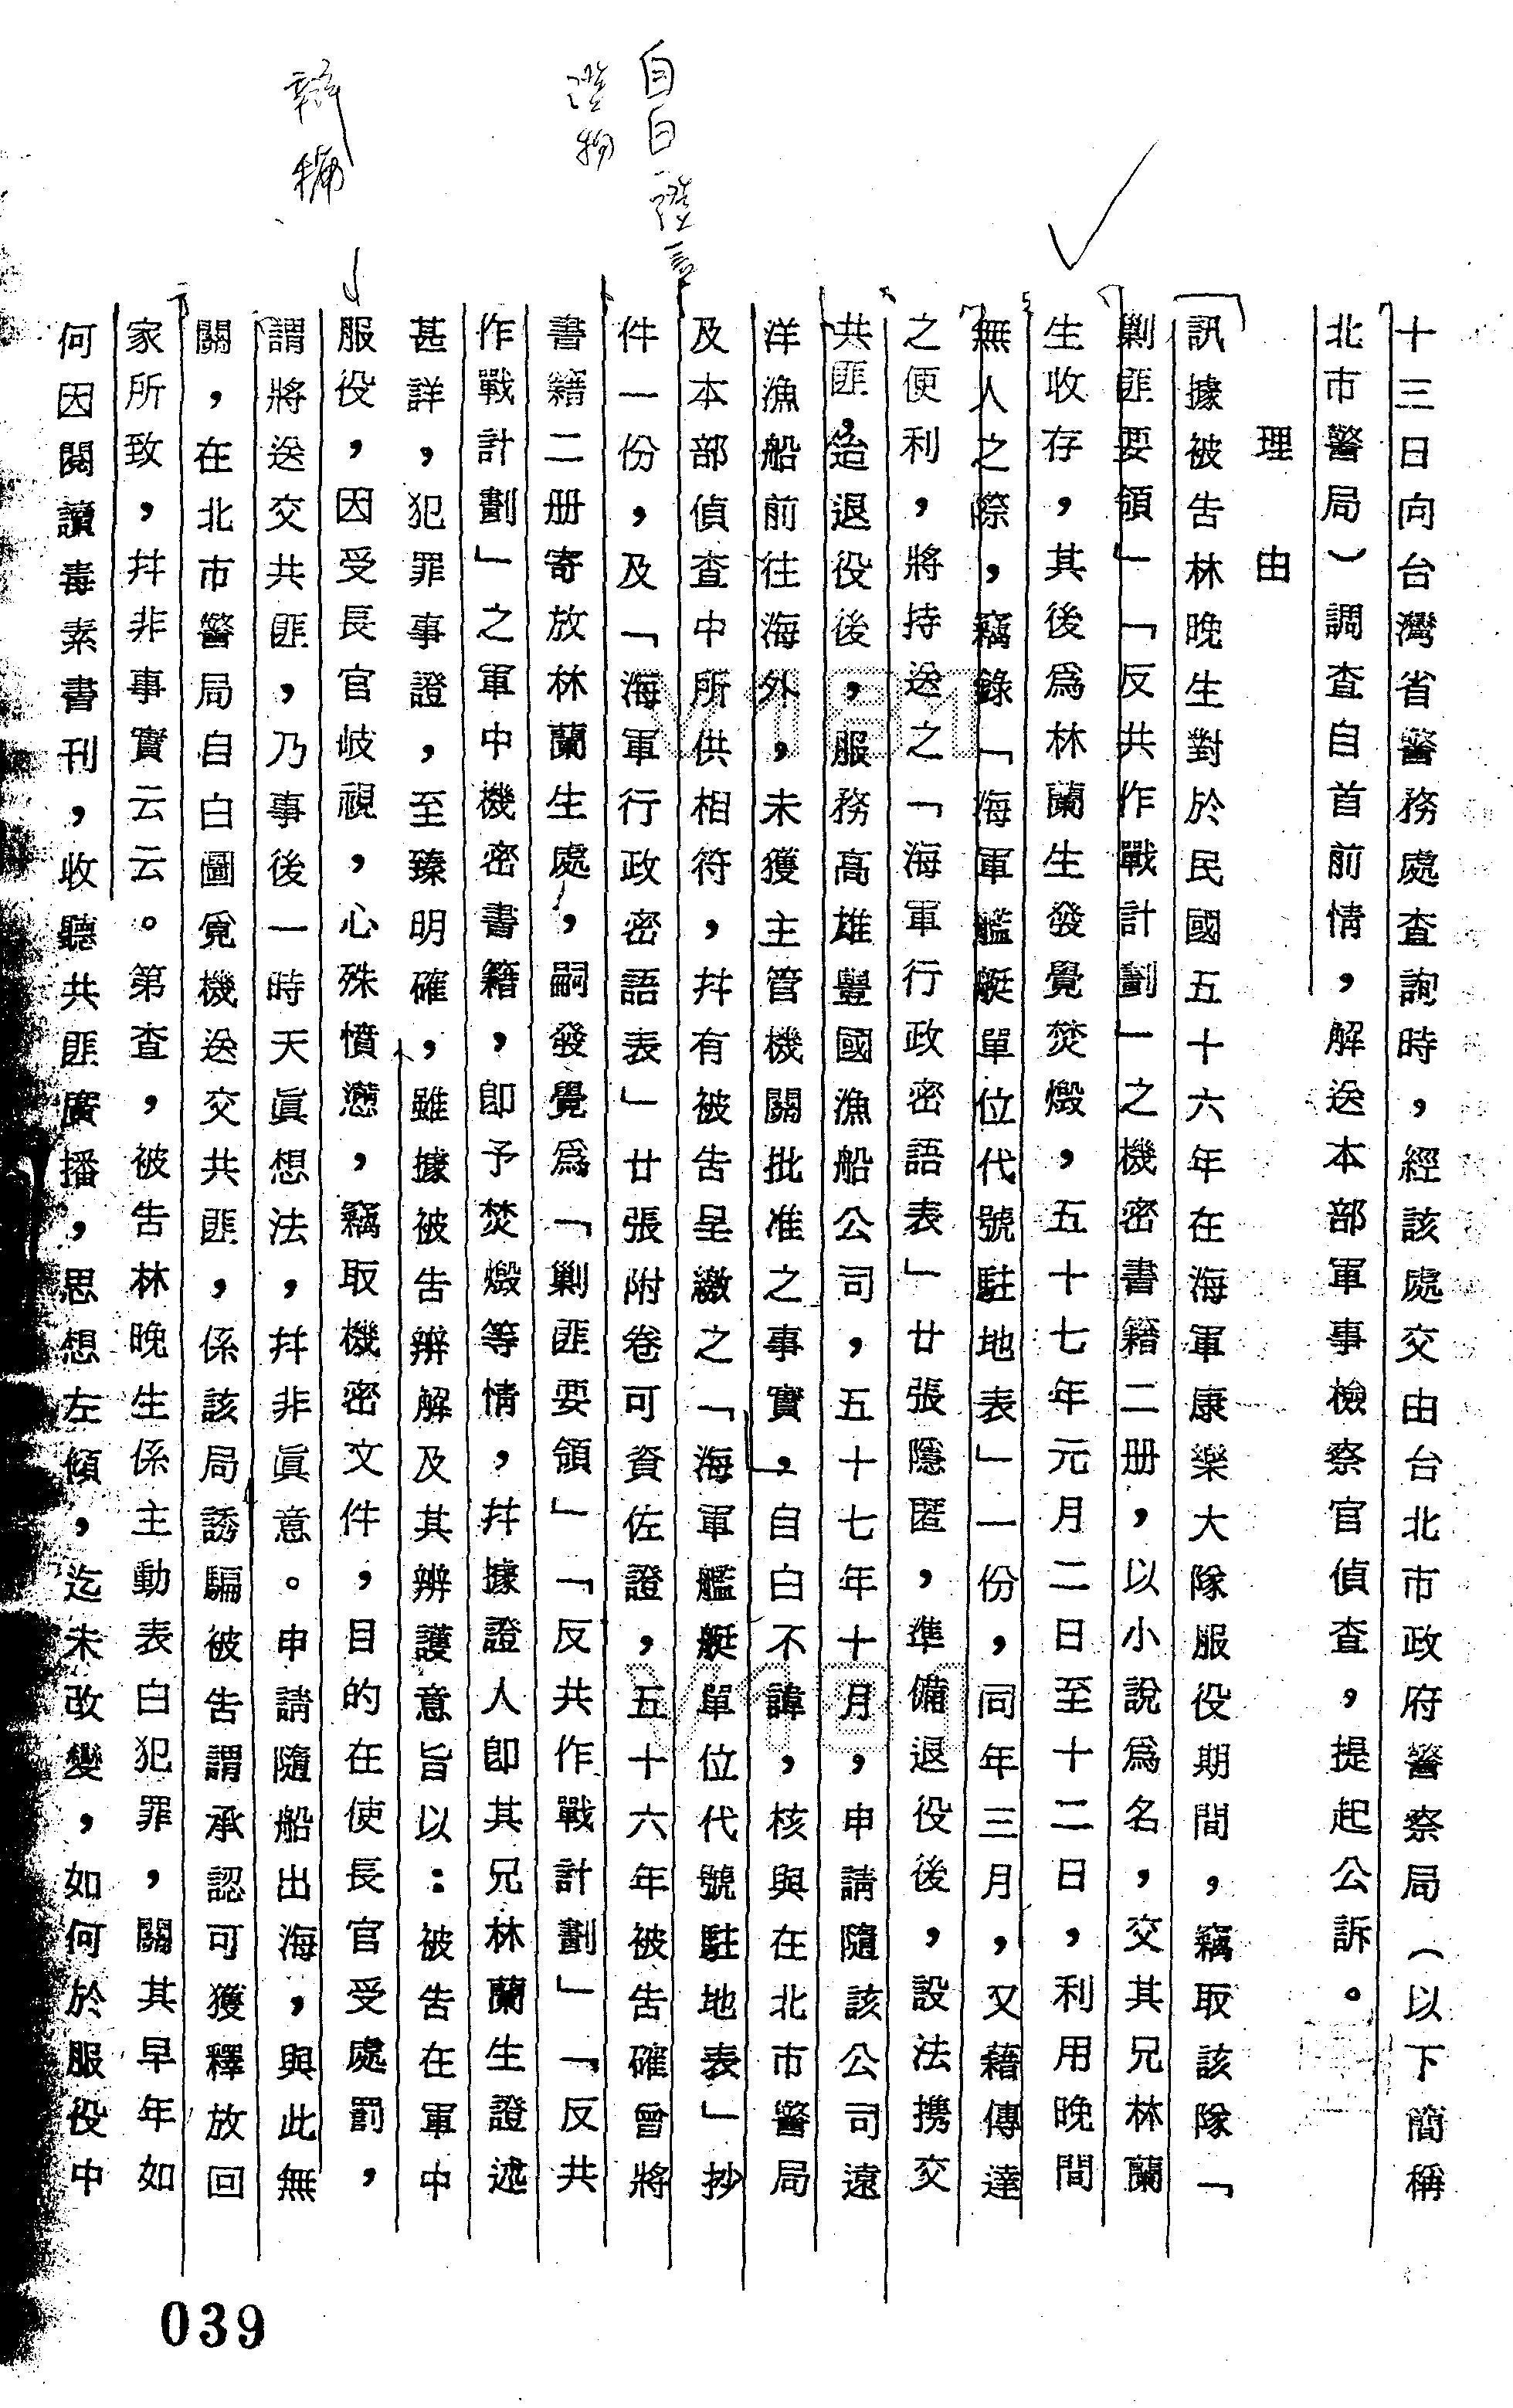 十三日向台灣省警務處查詢時，經該處交由台北市政府警察局（以下簡稱
北市警局）調查自首前情，解送本部軍事檢察官偵查，提起公訴。
理由
訊據被告林晚生對於民國五十六年在海軍康樂大隊服役期間，竊取該隊「
剿匪要領」「反共作戰計劃」之機密書籍二册，以小說爲名，交其兄林蘭
生收存，其後爲林蘭生發覺焚燬，五十七年元月二日至十二日，利用晚間
無人之際，竊錄「海軍艦艇單位代號駐地表」一份，同年三月，又藉傳達
之便利，將持送之「海軍行政密語表」廿張隱匿，準備退役後，設法携交
共匪，迨退役後，服務高雄豐國漁船公司，五十七年十月，申請隨該公司遠
洋漁船前往海外，未獲主管機關批准之事實，自白不諱，核與在北市警局
及本部偵查中所供相符，幷有被告呈繳之「海軍艦艇單位代號駐地表」抄
件一份，及「海軍行政密語表」廿張附卷可資佐證，五十六年被告確曾將
書籍二册寄放林蘭生處，嗣發覺爲「剿匪要領」「反共作戰計劃」「反共
作戰計劃」之軍中機密書籍，卽予焚燬等情，幷據證人卽其兄林蘭生證述
甚詳，犯罪事證，至臻明確，雖據被告辨解及其辨護意旨以：被告在軍中
服役，因受長官歧視，心殊憤懑，竊取機密文件，目的在使長官受處罰，
謂將送交共匪，乃事後一時天眞想法，幷非眞意。申請隨船出海，與此無
關，在北市警局自白圖覓機送交共匪，係該局誘騙被告謂承認可獲釋放回
家所致，幷非事實云云。第查，被告林晚生係主動表白犯罪，關其早年如
何因閱讀毒素書刊，收聽共匪廣播，思想左傾，迄未改變，如何於服役中
自白
證物
辯稱
039